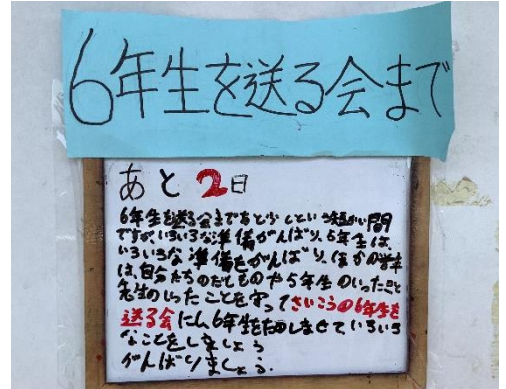 6年生を送る会まで
あと2日
6年生を送る会まであと少しという短い間
ですが、いろいろな準備がんばり、5年生は、
いろいろな準備をがんばり、ほかの学年
は、自分たちのだしものや5年生のいったこと
先生のいったことを守ってさいこうの6年生を
送る会にし、6年生をたのしませて、いろいろ
なことをしましょう
がんばりましょう.